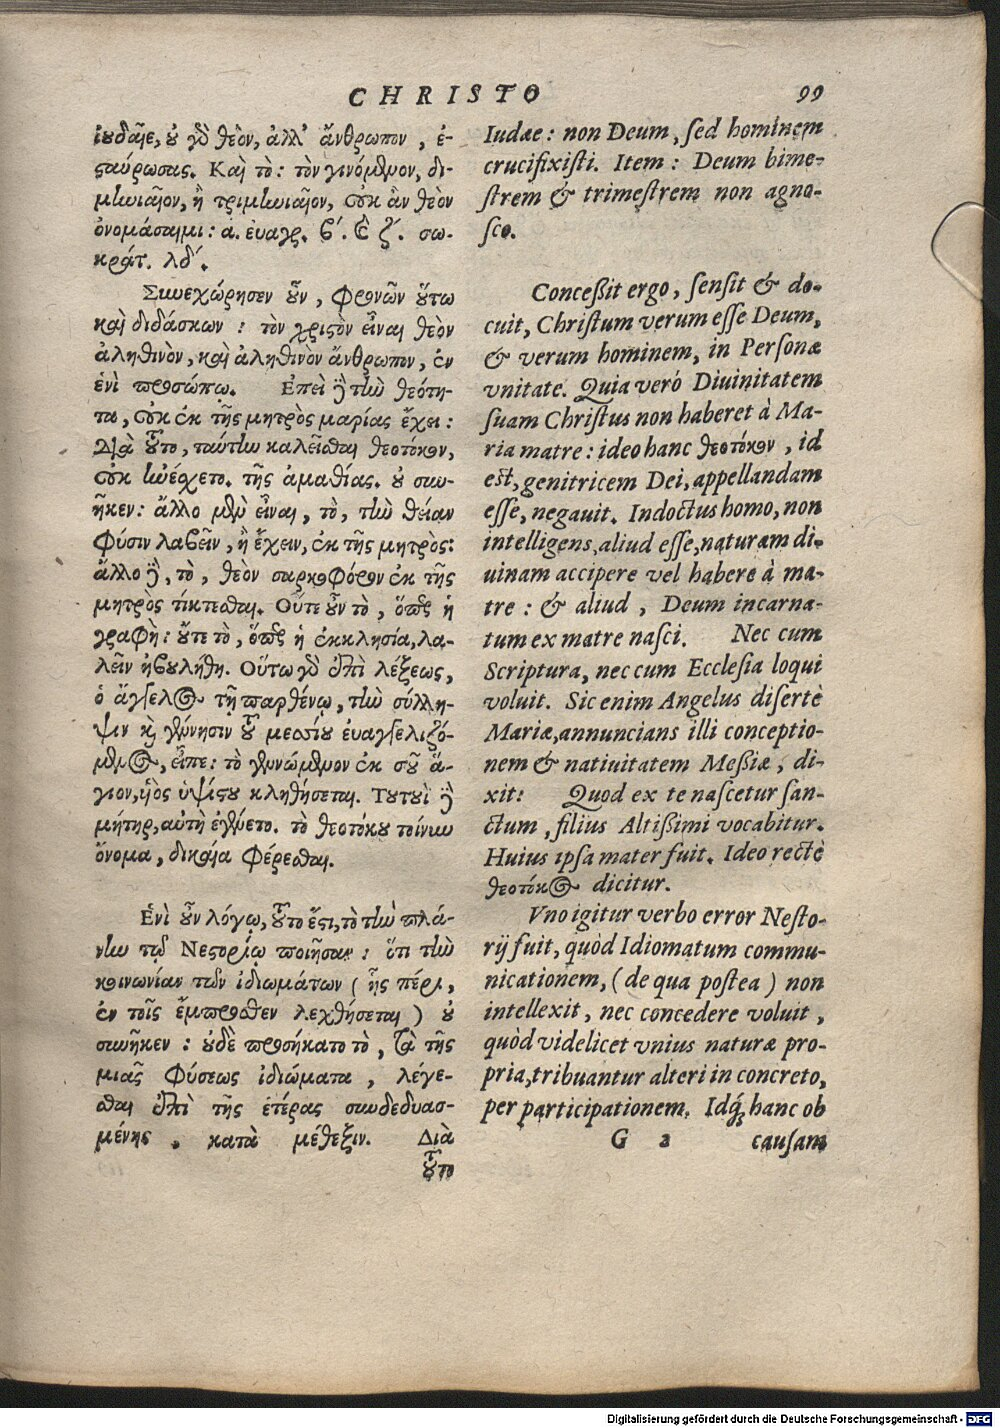 CHRISTO 99
ἰουδαῖε, οὐ γὸ θεὸν, ἀλλ' ἄνθρωπον, ἐ-
σαύρωσας. Καὶ τὸ: τὸν γινόμενον, δι-
μηνιαῖον, ἢ τριμηνιαῖον, οὐκ ἂν θεὸν
ὀνομάσαιμι: α. ἐυαγρ. ϐ΄. Ϛ ζ΄. σω-
κράτ. λδ΄.
Συνεχώρησεν οὖν, φρονῶν οὕτω
καὶ διδάσκων: τὸν χριστὸν εἶναι θεὸν
ἀληθινὸν, καὶ ἀληθινὸν ἄνθρωπον, ἐν
ἑνὶ προσώπῳ. Ἐπεὶ δὲ τὴν θεότη-
τα, οὐκ ἐκ τῆς μητρὸς μαρίας ἔχει:
Διὰ τοῦτο, ταύτην καλεῖσθαι θεοτόκον,
οὐκ ἠνέσχετο. τῆς ἀμαθίας. οὐ συν-
ῆκεν: ἄλλο μὲν εἶναι, τὸ, τὴν θείαν
φύσιν λαβεῖν, ἢ ἔχειν, ἐκ τῆς μητρὸς:
ἄλλο δὲ, τὸ, θεὸν σαρκοφόρον ἐκ τῆς
μητρὸς τίκτεσθαι. Οὔτε οὖν τὸ, ὅπως ἡ
γραφὴ: οὔτε τὸ, ὅπως ἡ ἐκκλησία, λα-
λεῖν ἠβουλήθη. Οὕτω γὸ ἐπὶ λέξεως,
ὁ ἄγγελος τῇ παρθένῳ, τὴν σύλλη-
ψιν καὶ γέννησιν τοῦ μεσσίου ἐυαγγελιζό-
μενος, εἶπε: τὸ γεννώμενον ἐκ σοῦ ἅ-
γιον, ὑιὸς ὑψίστου κληθήσεται. Τουτουὶ δὲ
μήτηρ, αὐτὴ ἐγένετο. τὸ θεοτόκου τοίνυν
ὄνομα, δικαία φέρεσθαι.
Ἑνὶ οὖν λόγῳ, τοῦτο ἔστι, τὸ τὴν πλά-
νην τῷ Νεστορίῳ ποιῆσαν: ὅτι τὴν
κοινωνίαν τῶν ἰδιωμάτων (ἧς πέρι,
ἐν τοῖς ἔμπροσθεν λεχθήσεται) οὐ
συνῆκεν: οὐδὲ προσήκατο τὸ, τὰ τῆς
μιᾶς φύσεως ἰδιώματα, λέγε-
σθαι ἐπὶ τῆς ἑτέρας συνδεδυασ-
μένης, κατὰ μέθεξιν. Διὰ
τοῦτο
Iudæe: non Deum, sed hominem
crucifixisti. Item: Deum bime-
strem & trimestrem non agno-
sco.
Concessit ergo, sensit & do-
cuit, Christum verum esse Deum,
& verum hominem, in Personæ
vnitate. Quia verò Diuinitatem
suam Christus non haberet à Ma-
ria matre: ideo hanc θεοτόκον, id
est, genitricem Dei, appellandam
esse, negauit. Indoctus homo, non
intelligens, aliud esse, naturam di-
uinam accipere vel habere à ma-
tre: & aliud, Deum incarna-
tum ex matre nasci. Nec cum
Scriptura, nec cum Ecclesia loqui
voluit. Sic enim Angelus disertè
Mariæ, annuncians illi conceptio-
nem & natiuitatem Messiæ, di-
xit: Quod ex te nascetur san-
ctum, filius Altissimi vocabitur.
Huius ipsa mater fuit. Ideo rectè
θεοτόκος dicitur.
Vno igitur verbo error Nesto-
rij fuit, quòd Idiomatum commu-
nicationem, (de qua postea) non
intellexit, nec concedere voluit,
quòd videlicet vnius naturæ pro-
pria, tribuantur alteri in concreto,
per participationem. Idq; hanc ob
G 2 causam
Digitalisierung gefördert durch die Deutsche Forschungsgemeinschaft - DFG